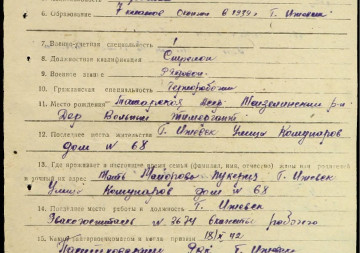 6. Образование 7 классов окончил в 1939г. Г. Ижевск
7. Военно-учетная специальность 1
8. Должностная квалификация Стрелок
9. Военное звание Рядовой
10. Гражданская специальность Чернорабочий
11. Место рождения Татарская АССР Мензелинский р-н
Дер Большие
12. Последнее место жительства Г. Ижевск улица Комунаров
дом № 68
13. Где проживает в настоящее время семья (фамилия, имя, отчество) жены или родителей
и точный их адрес Мать Г. Ижевск
Улица Комунаров дом № 68
14. Последнее место работы и должность Г. Ижевск
Эвакогоспиталь № 3674 рабочего
15. Каким райвоенкоматом и когда призван 18/X 42
Г. Ижевск